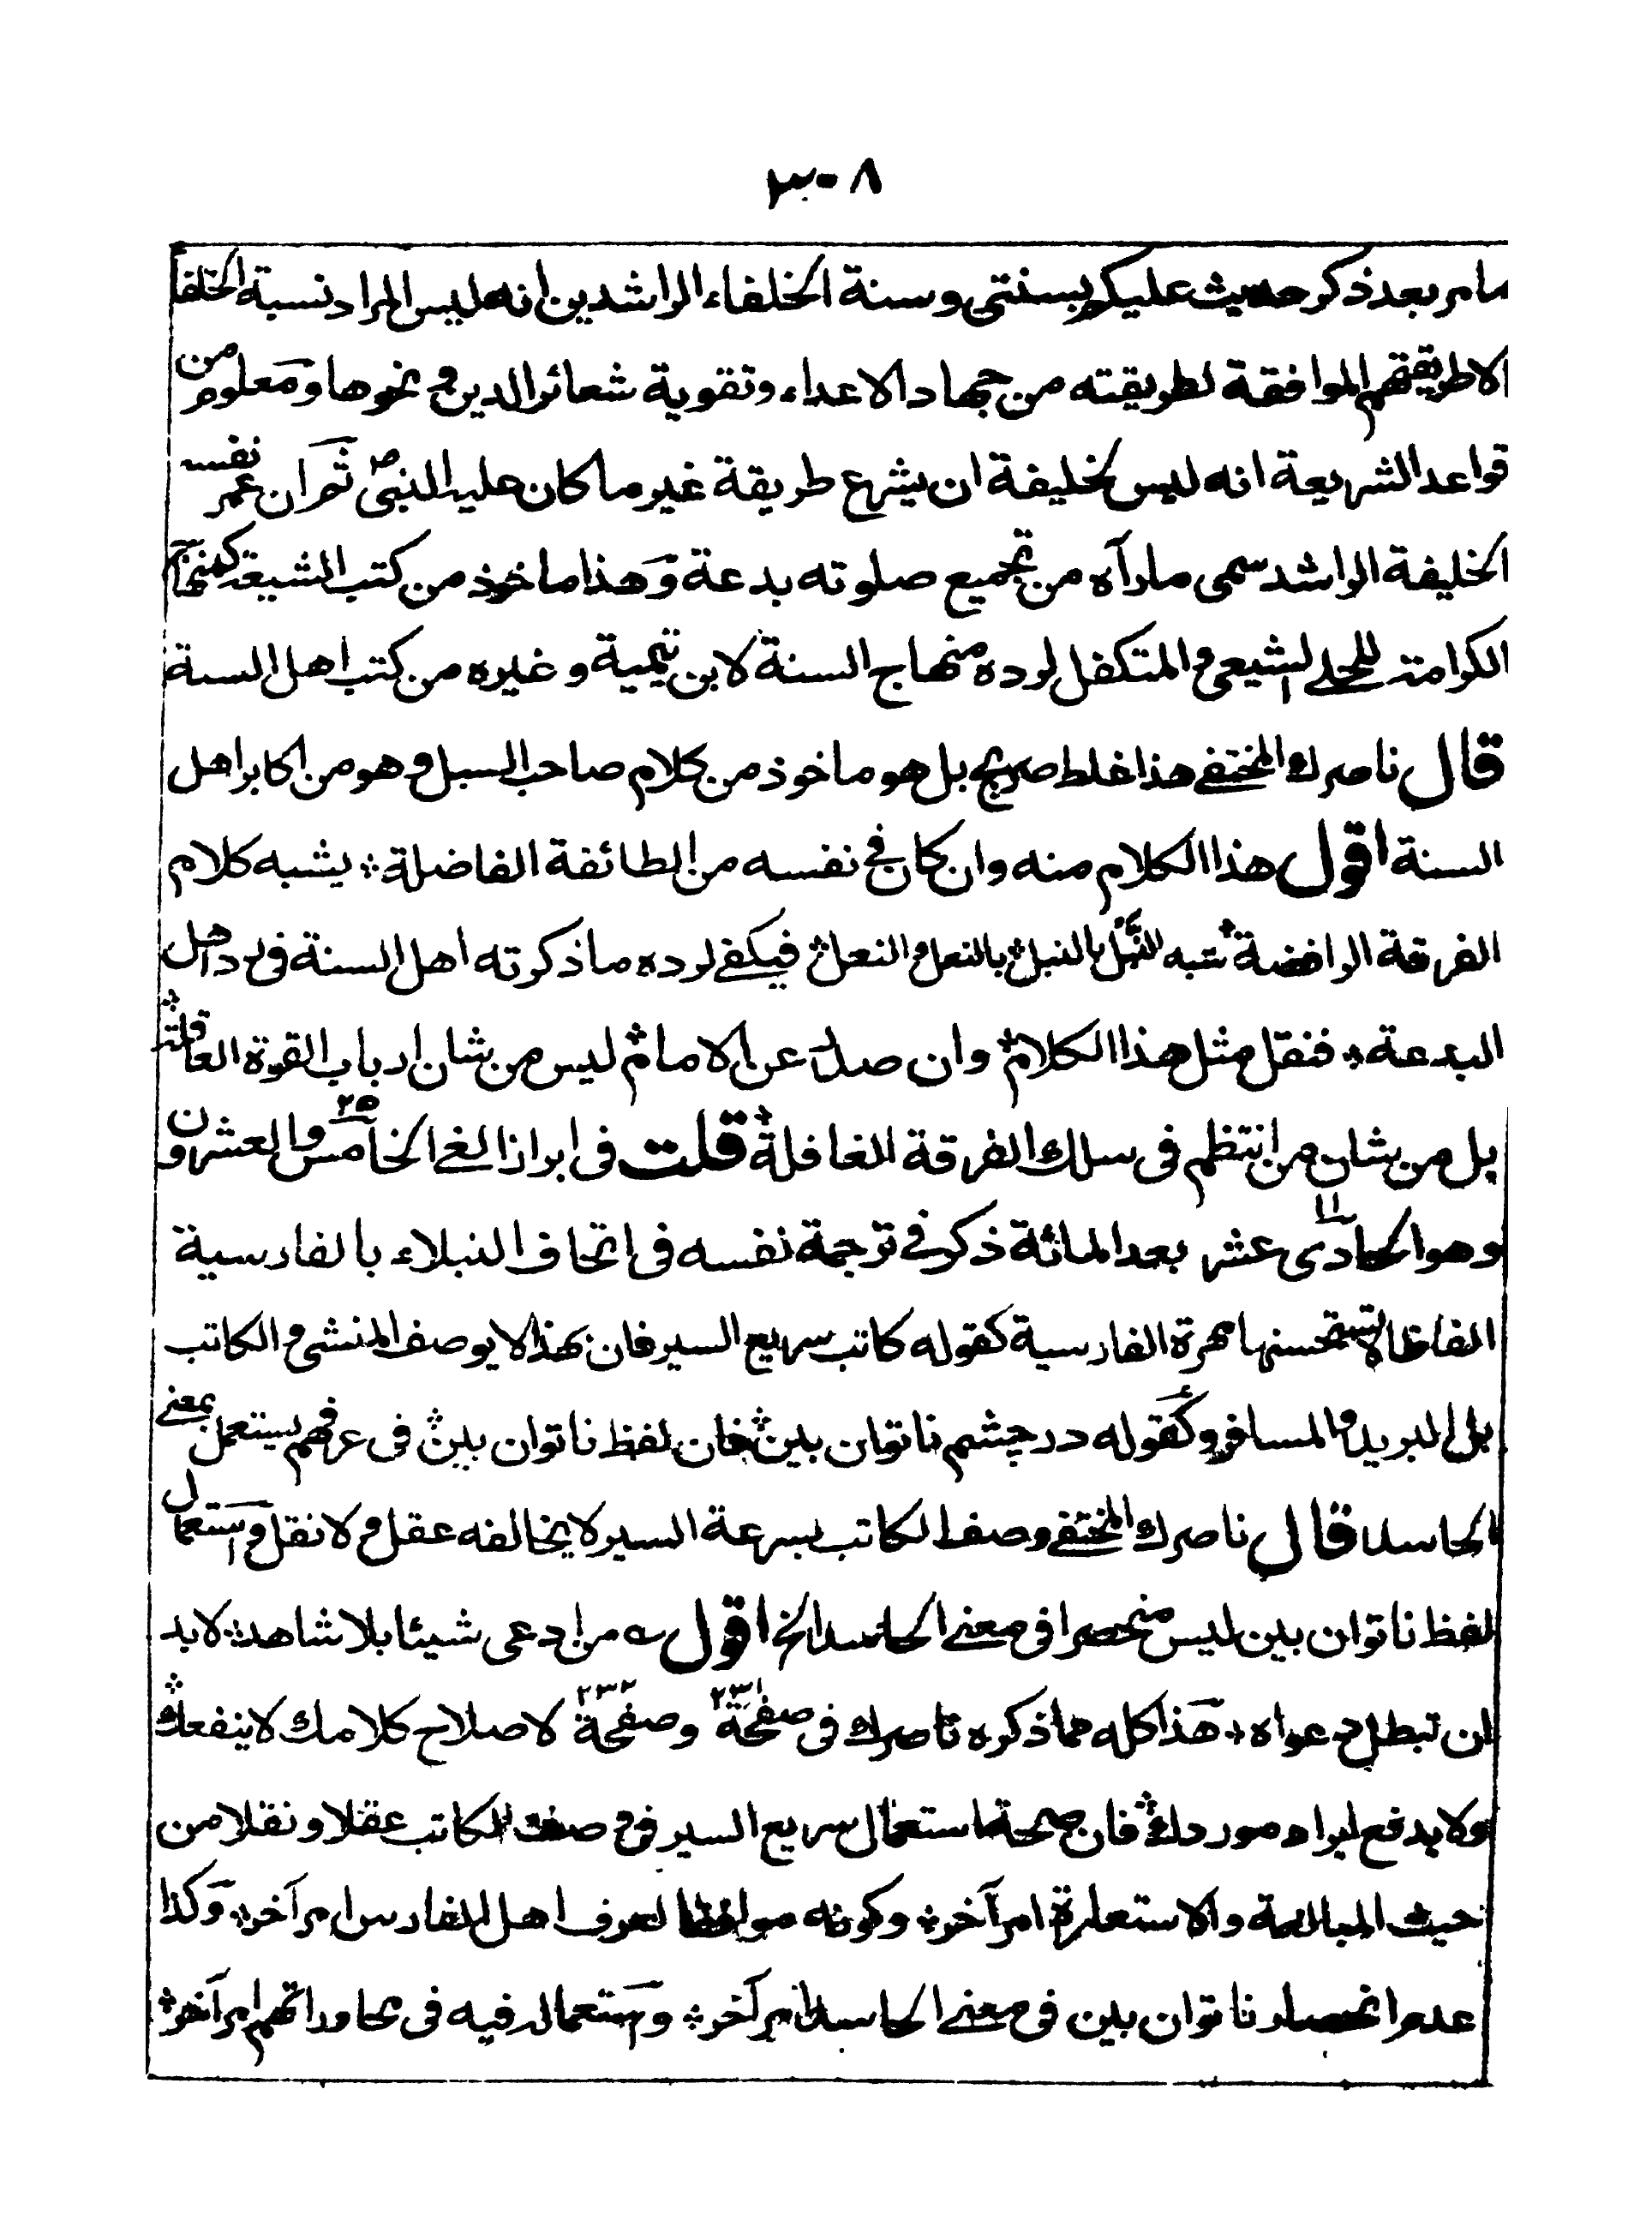 ٣٠٨
مامر بعد ذكر حديث عليكم بسنتى وسنة الخلفاء الراشدين انه ليس المراد نسبة الخلفا
الا طريقتهم الموافقة لطريقته من جهاد الاعداء وتقوية شعائر الدين ونحوها ومعلوم من
قواعد الشريعة انه ليس لخليفة ان يشرع طريقة غير ما كان عليه النبى ص ثم ان عمر نفسه
الخليفة الراشد سمى ما رآه من تجميع صلوته بدعة وهذا ماخوذ من كتب الشيعة كمنهاج
الكرامة للحلے الشيعى والمتكفل لرده منهاج السنة لابن تيمية وغيره من كتب اهل السنة
قال ناصرك المختفے هذا غلط صريح بل هو ماخوذ من كلام صاحب السبل وهو من اكابر اهل
السنة اقول هذا الكلام منه وان كان فى نفسه من الطائفة الفاضلة؞ يشبه كلام
الفرقة الرافضة؞ شبه النبل بالنبل؞ بالنعل والنعل؞ فيكفے لرده ما ذكرته اهل السنة فى رد اهل
البدعة؞ فنقل مثل هذا الكلام؞ وان صدر عن الامام؞ ليس من شان ارباب القوة العاقلة؞
بل من شان من انتظم فى سلك الفرقة الغافلة؞ قلت فى ابراز الغے الخامس والعشرون ٢٥
وهو الحادى عشر ١١ بعد المائة ذكر فے ترجمة نفسه فى اتحاف النبلاء بالفارسية
الفاظا لا تستحسنها مهرة الفارسية كقوله كاتب سريع السير فان بهذا لا يوصف المنشى والكاتب
بل البريد والمسافر وكقوله در چشم ناتوان بين؞ فان لفظ ناتوان بين؞ فى عرفهم يستعمل بمعنے
الحاسد قال ناصرك المختفے وصف الكاتب بسرعة السير لا يخالفه عقل ولا نقل واستعمال
لفظ ناتوان بين ليس منحصرا فى معنے الحاسد الخ اقول ؎ من ادعى شيئا بلا شاهد؞ لا بد
ان تبطل دعواه؞ هذا كله مما ذكره ناصرك فى صفحة ٢٣١ وصفحة ٢٣٢ لاصلاح كلامك لا ينفعك؞
ولا يدفع ايراد موردك؞ فان صحة استعمال سريع السير فى صفت الكاتب عقلا ونقلا من
حيث المبالغة والاستعارة امر آخر؞ وكونه موافقا لعرف اهل الفارس امر آخر؞ وكذا
عدم انحصار ناتوان بين فى معنے الحاسد امر آخر؞ واستعماله فيه فى محاوراتهم امر آخر؞